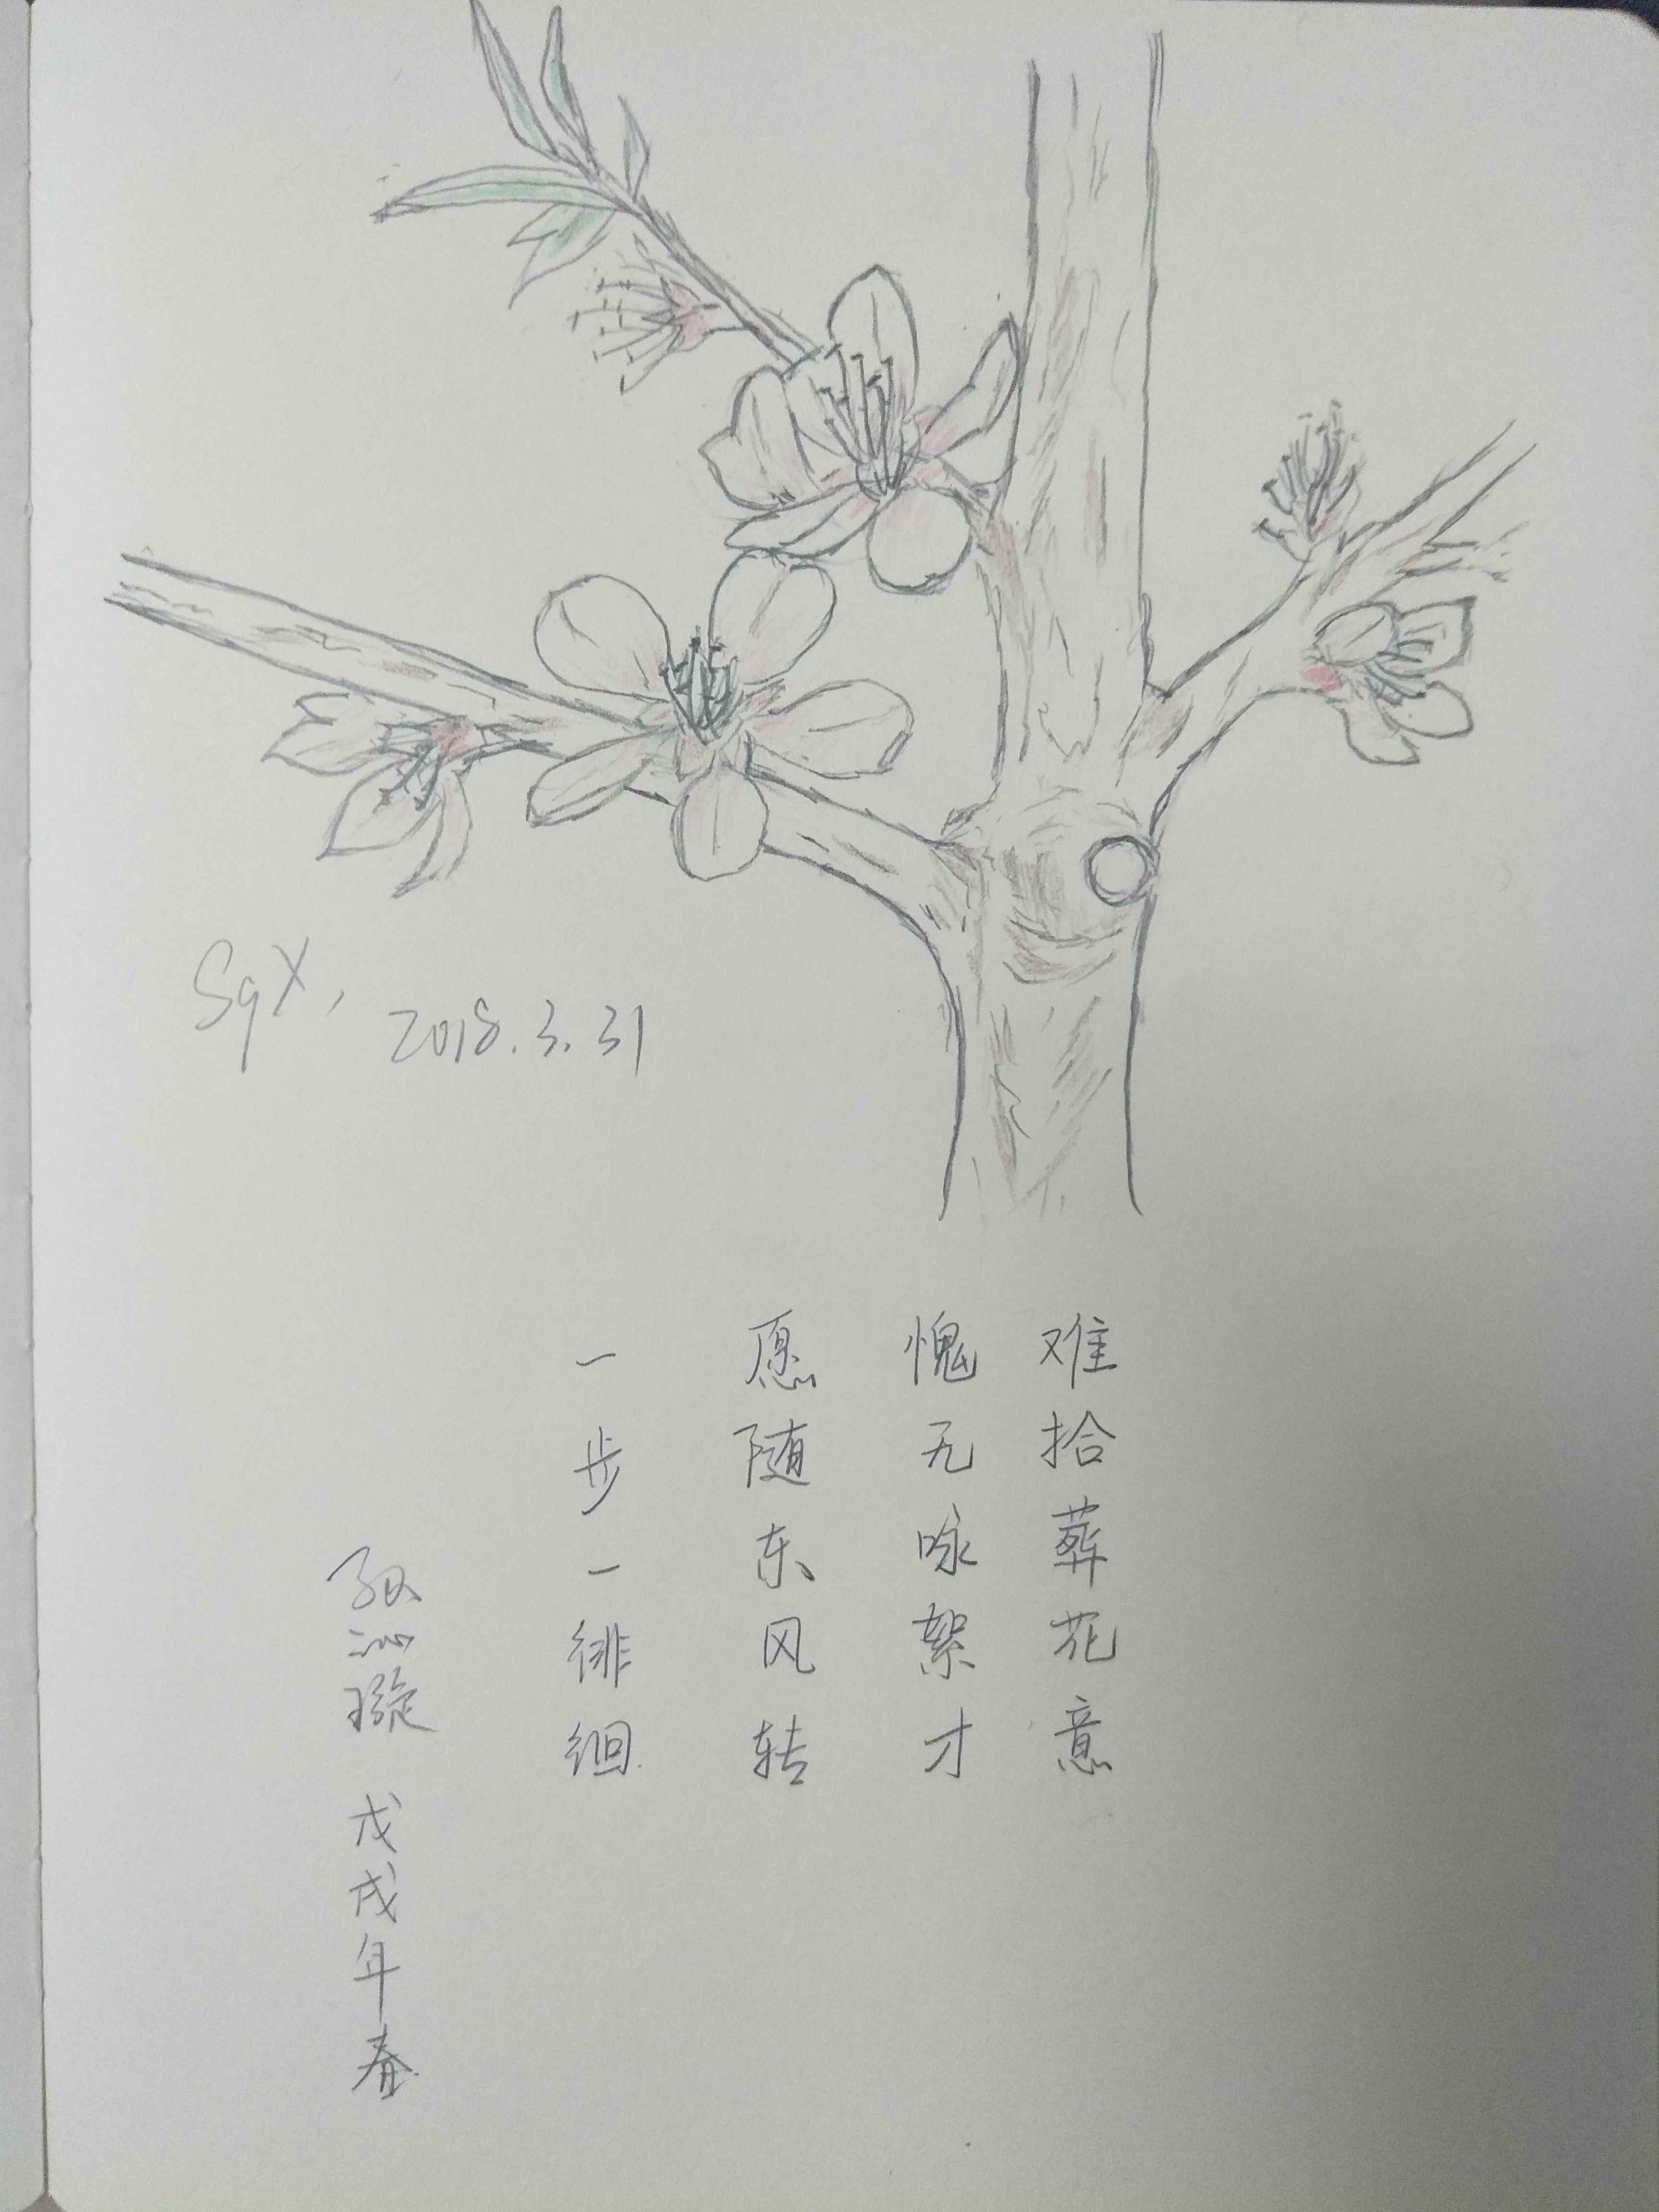 SqX,
2018.3.31
难拾葬花意
愧无咏絮才
愿随东风转
一步一徘徊.
孙沁璇 戊戌年春